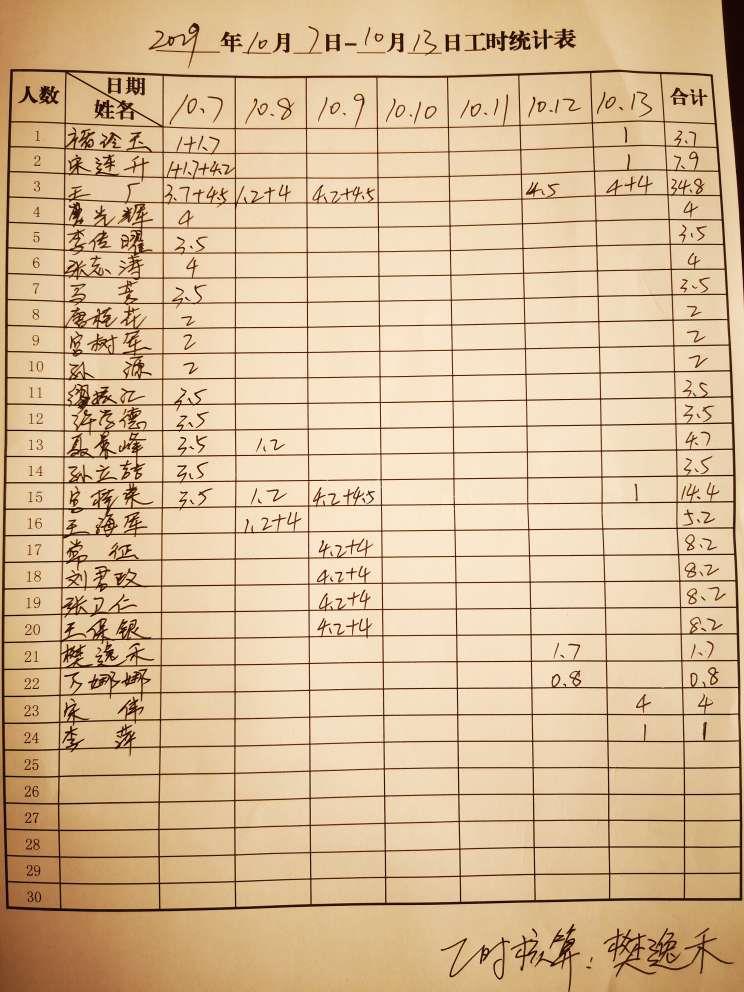 2029 年 10 月 7 日-10 月 13 日工时统计表
人数 日期 姓名 10.7 10.8 10.9 10.10 10.11 10.12 10.13 合计
1 玉 1+1.7 1 3.7
2 宋连升 1+1.7+4.2 1 7.9
3 王广 3.7+4.5 1.2+4 4.2+4.5 4.5 4+4 34.8
4 光辉 4 4
5 李传曜 3.5 3.5
6 张志涛 4 4
7 马 3.5 3.5
8 唐桂花 2 2
9 宫树军 2 2
10 孙源 2 2
11 缪振汇 3.5 3.5
12 许学德 3.5 3.5
13 聂景峰 3.5 1.2 4.7
14 孙立喆 3.5 3.5
15 宫桂荣 3.5 1.2 4.2+4.5 1 14.4
16 王海军 1.2+4 5.2
17 常征 4.2+4 8.2
18 刘君玫 4.2+4 8.2
19 张卫仁 4.2+4 8.2
20 王保银 4.2+4 8.2
21 樊逸禾 1.7 1.7
22 娜娜 0.8 0.8
23 宋伟 4 4
24 李萍 1 1
25
26
27
28
29
30
工时核算：樊逸禾